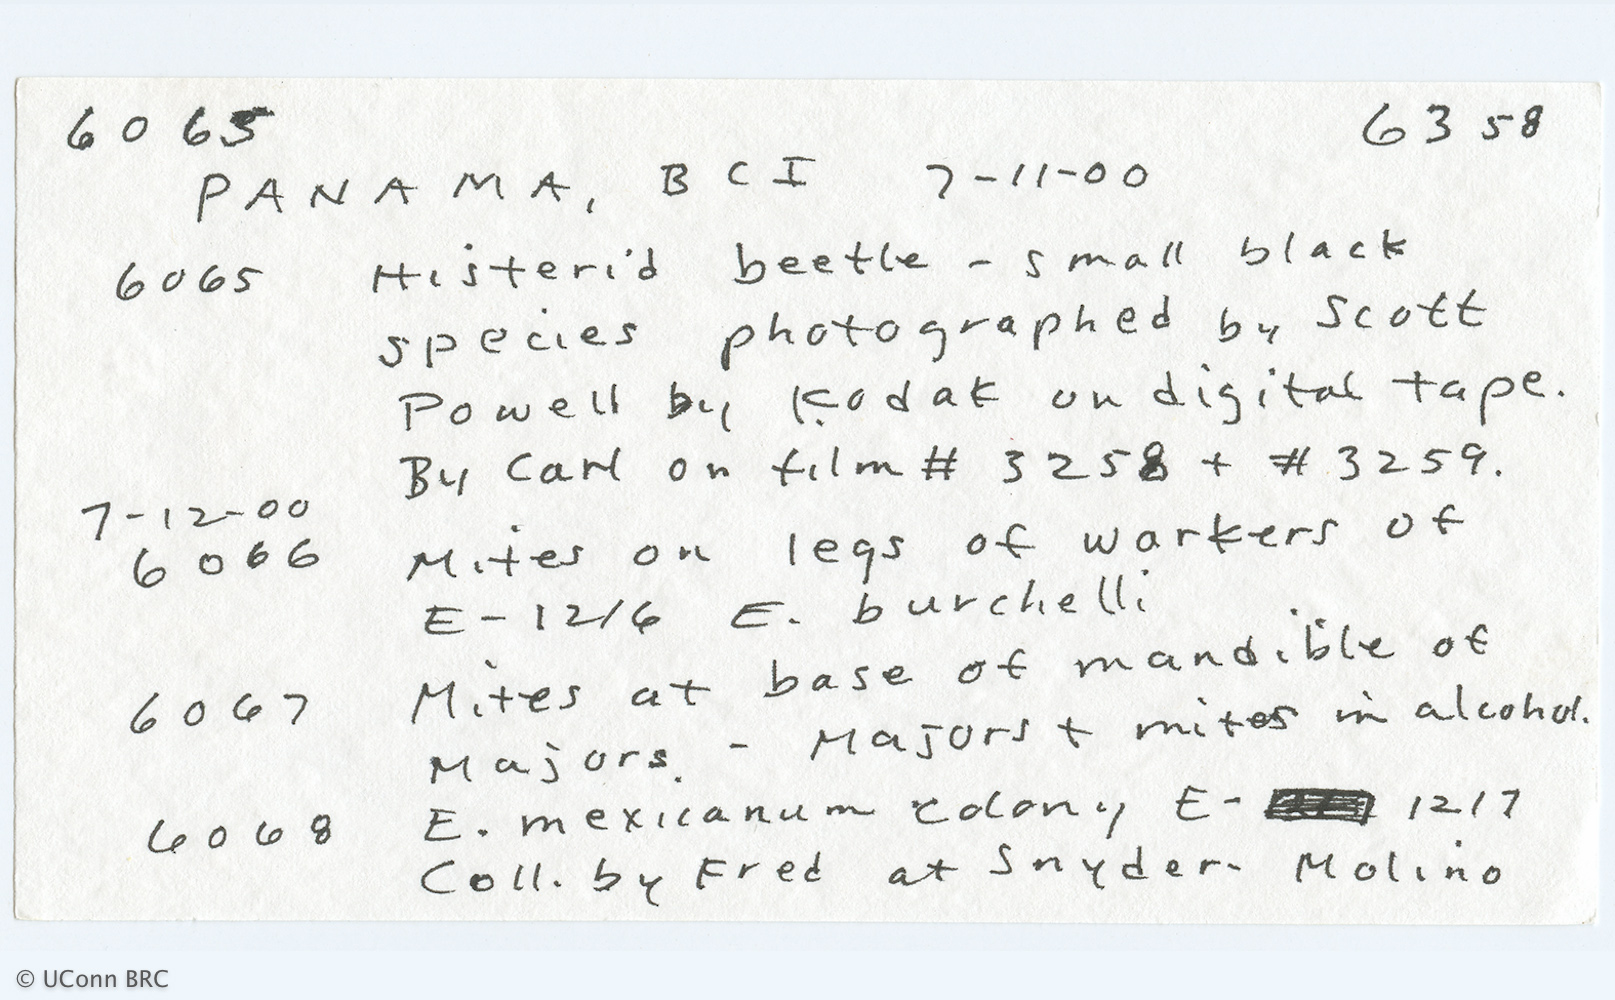 6065 6358
PANAMA, BCI 7-11-00
6065 Histerid beetle - small black
species photographed by Scott
Powell by Kodak on digital tape.
By Carl on film # 3258 + # 3259.
7-12-00
6066 Mites on legs of workers of
E-1216 E. burchelli
6067 Mites at base of mandible of
Majors. - Majors + mites in alcohol.
6068 E. mexicanum colony E- 1217
Coll. by Fred at Snyder-Molino
© UConn BRC